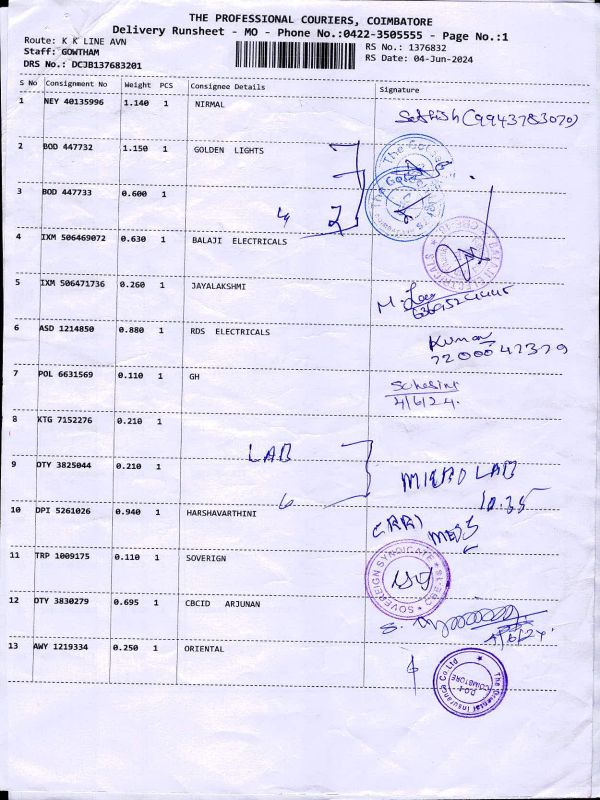 THE PROFESSIONAL COURIERS, COIMBATORE
Delivery Runsheet - MO - Phone No.:0422-3505555 - Page No.:1
Route: K K LINE AVN
Staff: GOWTHAM
DRS No.: DCJB137683201
RS No.: 1376832
RS Date: 04-Jun-2024
S No Consignment No Weight PCS Consignee Details Signature
1 NEY 40135996 1.140 1 NIRMAL
(9943783070)
2 BOD 447732 1.150 1 GOLDEN LIGHTS
3 BOD 447733 0.600 1
4 IXM 506469072 0.630 1 BALAJI ELECTRICALS
5 IXM 506471736 0.260 1 JAYALAKSHMI
6 ASD 1214850 0.880 1 RDS ELECTRICALS
Kumar
7200047379
7 POL 6631569 0.110 1 GH
4/6/24.
8 KTG 7152276 0.210 1
LAB
9 DTY 3825044 0.210 1
MICRO LAB
10.35
10 DPI 5261026 0.940 1 HARSHAVARTHINI
11 TRP 1009175 0.110 1 SOVERIGN
SOVEREIGN SYNDICATE * CBE-18 *
12 DTY 3830279 0.695 1 CBCID ARJUNAN
4/6/24.
13 AWY 1219334 0.250 1 ORIENTAL
The Oriental Insurance Co.Ltd
COIMBATORE